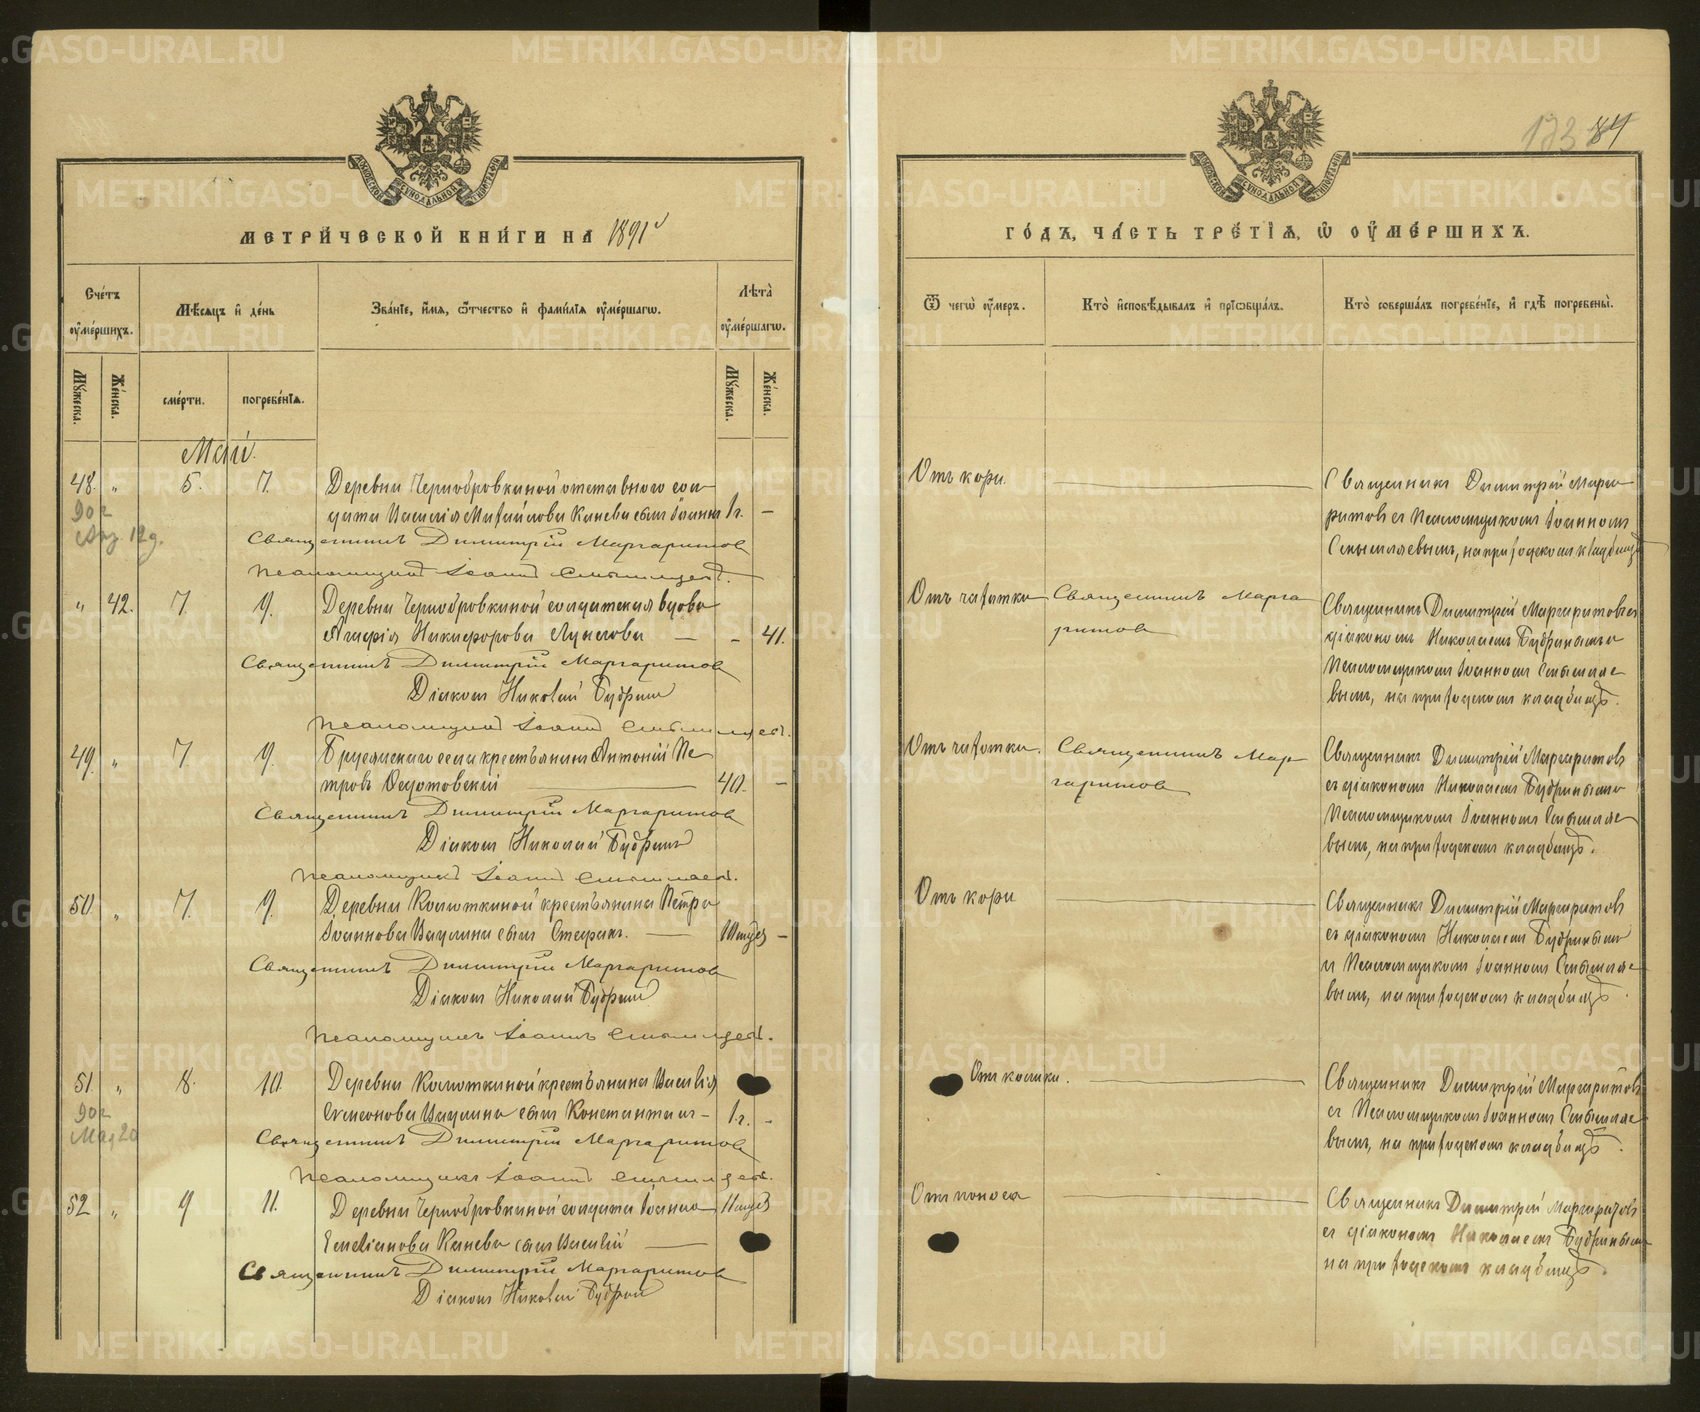 METRIKI.GASO-URAL.RU
173 84
МЕТРИ́ЧЕСКОЙ КНИ́ГИ НА 1891
ГО́ДЪ, ЧА́СТЬ ТРЕ́ТІѦ, Ѡ҆ ОУ҆МЕ́РШИХЪ.
Сче́тъ оу҆ме́ршихъ.
Мѣ́сяцъ и҆ де́нь
Зва́нїе, и҆́мѧ, ѻ҆́тчество и҆ фами́лїѧ оу҆ме́ршагѡ.
Лѣ́та оу҆ме́ршагѡ.
Ѿ чегѡ̀ оу҆́меръ.
Кто̀ и҆сповѣ́дывалъ и҆ прїѡбща́лъ.
Кто̀ соверша́лъ погребе́нїе, и҆ гдѣ̀ погребены̀.
Му́жеска.
Же́нска.
сме́рти.
погребе́нїѧ.
Му́жеска.
Же́нска.
Май.
48. „ 5. 7. Деревни Чернобровкиной отставного сол
дата Василія Михайлова Канева сынъ Іоаннъ 1 г. —
Священникъ Димитрій Маргаритовъ
Псаломщикъ Іоаннъ Смышляевъ.
Отъ кори.
Священникъ Димитрій Марга
ритовъ съ Псаломщикомъ Іоанномъ
Смышляевымъ, на приходскомъ кладбищѣ
„ 42. 7. 9. Деревни Чернобровкиной солдатская вдова
Агафія Никифорова Лунегова — - 41.
Священникъ Димитрій Маргаритовъ
Діаконъ Николай Бубринъ
Псаломщикъ Іоаннъ Смышляевъ.
Отъ чахотки
Священникъ Марга
ритовъ
Священникъ Димитрій Маргаритовъ съ
діакономъ Николаемъ Бубринымъ и
Псаломщикомъ Іоанномъ Смышляе
вымъ, на приходскомъ кладбищѣ.
49. „ 7. 9. Брусянскаго села крестьянинъ Антоній Пе
тровъ Федотовскій 40. —
Священникъ Димитрій Маргаритовъ
Діаконъ Николай Бубринъ
Псаломщикъ Іоаннъ Смышляевъ.
Отъ чахотки.
Священникъ Мар
гаритовъ
Священникъ Димитрій Маргаритовъ
съ діакономъ Николаемъ Бубринымъ и
Псаломщикомъ Іоанномъ Смышляе
вымъ, на приходскомъ кладбищѣ.
50 „ 7. 9. Деревни Колюткиной крестьянина Петра
Іоаннова Ваулина сынъ Стефанъ. —
Священникъ Димитрій Маргаритовъ
Діаконъ Николай Бубринъ
Псаломщикъ Іоаннъ Смышляевъ.
Отъ кори
Священникъ Димитрій Маргаритовъ
съ діакономъ Николаемъ Бубринымъ
и Псаломщикомъ Іоанномъ Смышляе
вымъ, на приходскомъ кладбищѣ.
51. „ 8. 10. Деревни Колюткиной крестьянина Василія
Симеонова Ваулина сынъ Константинъ — 1 г. -
Священникъ Димитрій Маргаритовъ
Псаломщикъ Іоаннъ Смышляевъ.
Отъ колики.
Священникъ Димитрій Маргаритовъ
съ Псаломщикомъ Іоанномъ Смышляе
вымъ, на приходскомъ кладбищѣ.
52 „ 9 11. Деревни Чернобровкиной солдата Іоанна
Емеліанова Канева сынъ Василій —
Священникъ Димитрій Маргаритовъ
Діаконъ Николай Бубринъ
Отъ поноса
Священникъ Димитрій Маргаритовъ
съ діакономъ Николаемъ Бубринымъ
на приходскомъ кладбищѣ.